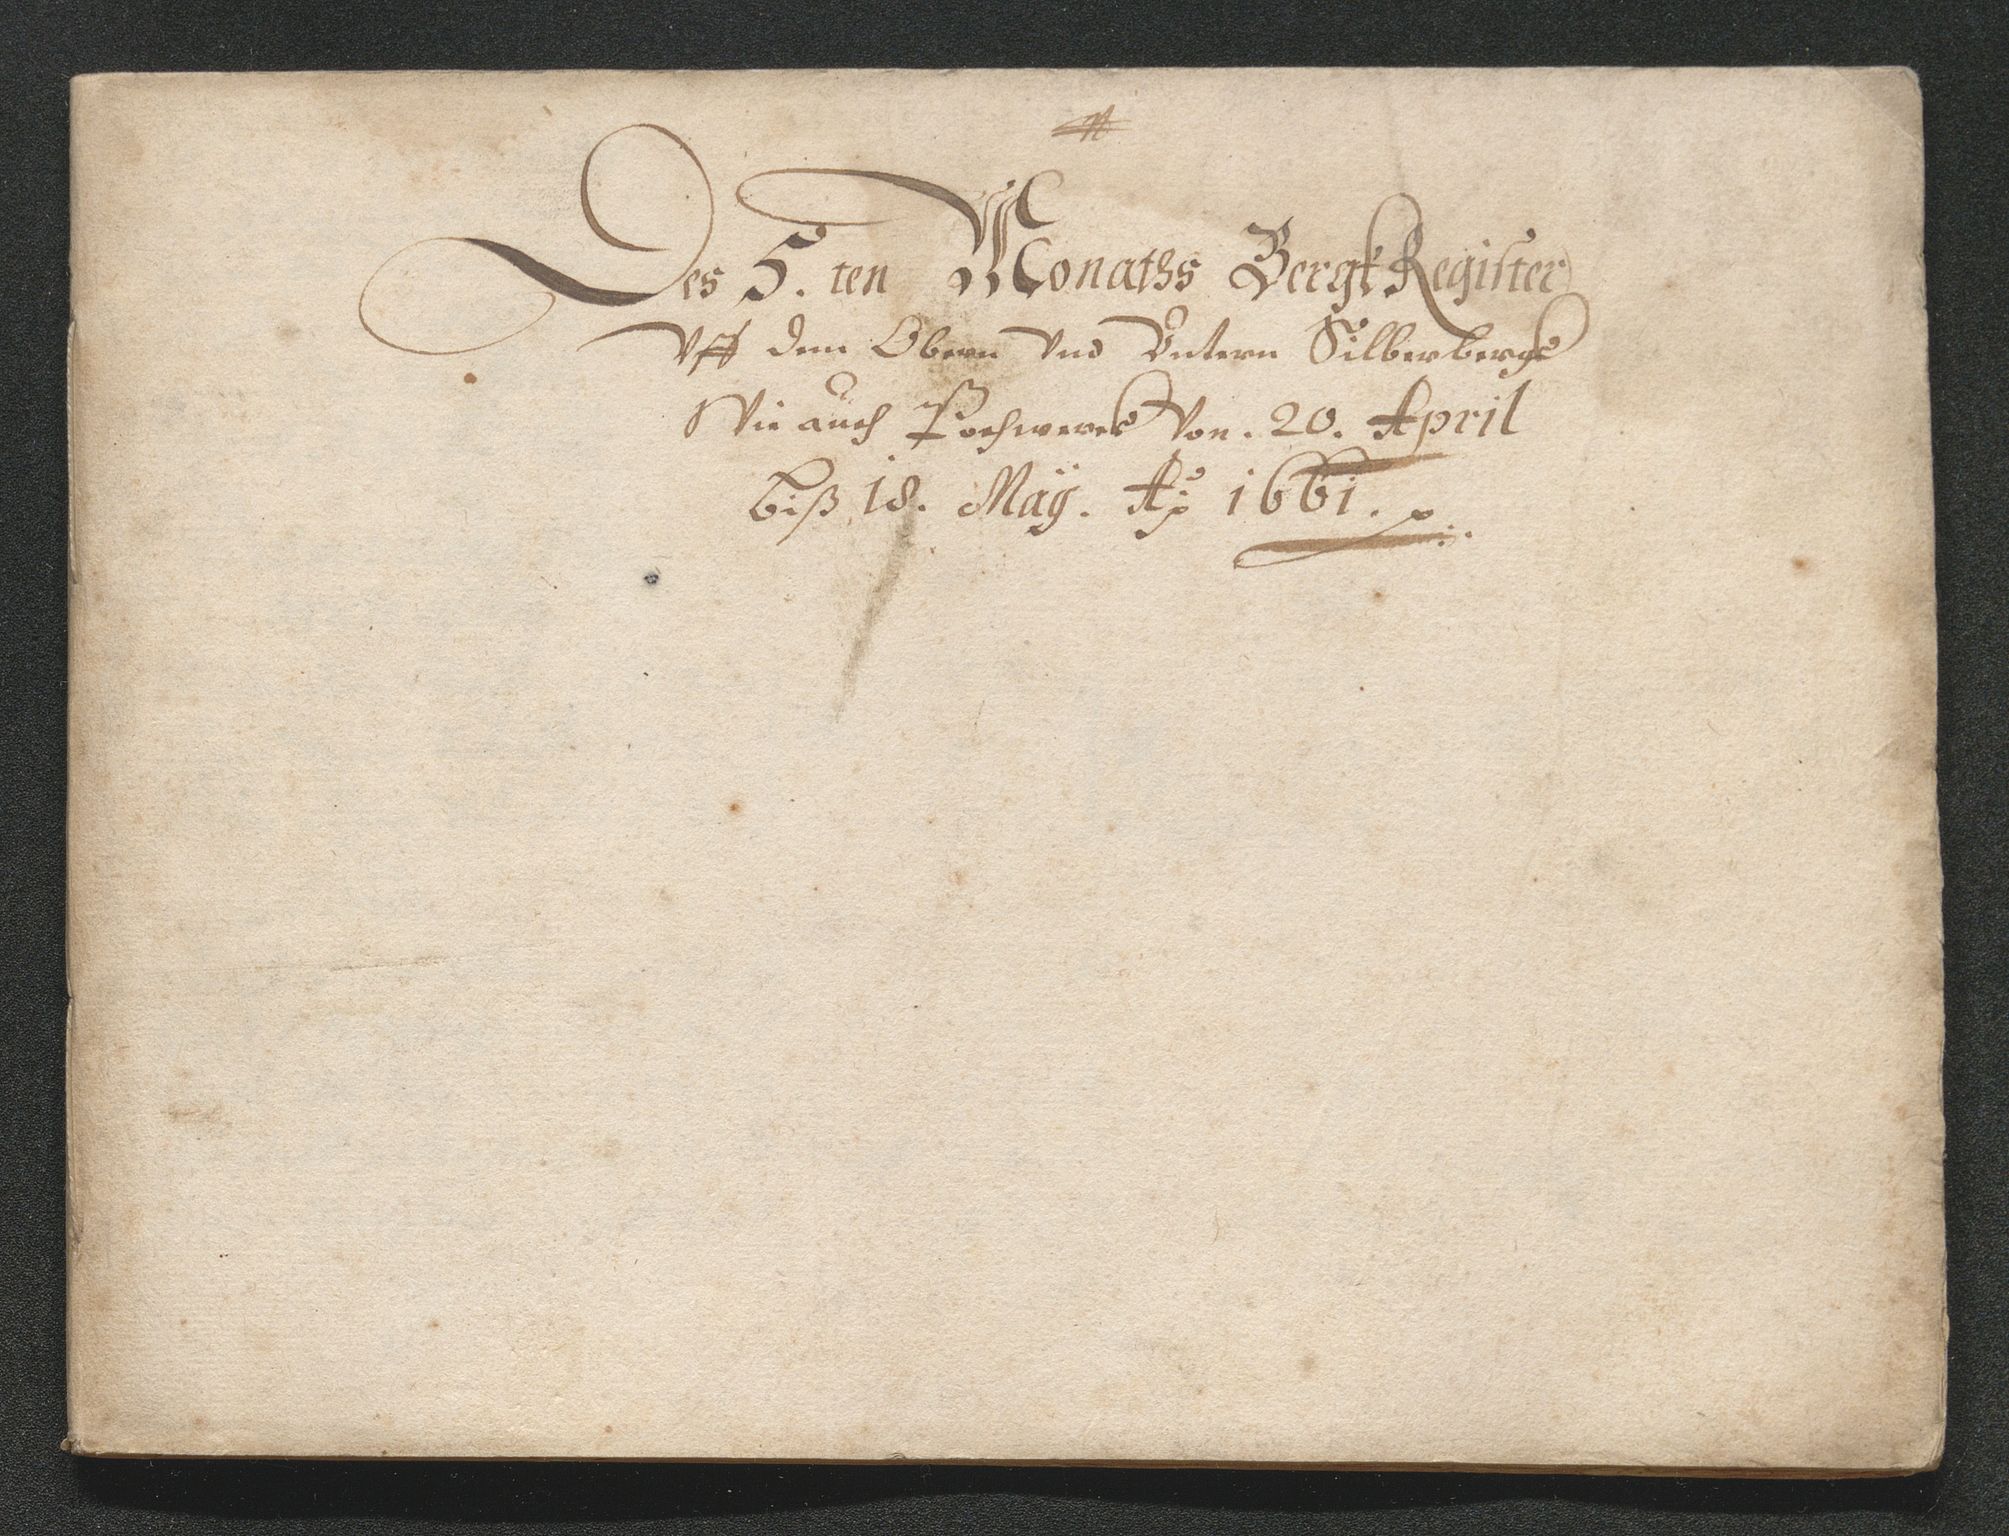 Des 5.ten Monaths Bergk Register
Vff dem Obern vnd Vntern Silberbergk
Wie auch Pochwerck von .20. April
biß 18. Maÿ. Ao 1661.